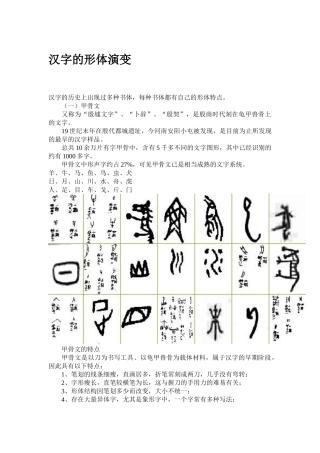 汉字的形体演变
汉字的历史上出现过多种书体，每种书体都有自己的形体特点。
（一）甲骨文
又称为“殷墟文字”、“卜辞”、“殷契”，是殷商时代刻在龟甲兽骨上
的文字。
19世纪末年在殷代都城遗址，今河南安阳小屯被发现，是目前为止所发现
的最早的汉字样品。
总共10余万片有字甲骨中，含有5千多不同的文字图形，其中已经识别的
约有1000多字。
甲骨文中形声字约占27%，可见甲骨文已是相当成熟的文字系统。
羊、牛、马、鱼、鸟、虫、犬
日、月、山、川、水、舟、虎
人、足、目、车、戈、弓、门
甲骨文的特点
甲骨文是以刀为书写工具、以龟甲兽骨为载体材料，属于汉字的早期阶段，
因此具有以下特点：
1、笔划的线条细瘦，直画居多，折笔常刻成两刀，几乎没有弯转；
2、字形瘦长，直笔较横笔为长，这与握刀的手用力的难易有关；
3、形体结构因笔划多少而改变，大小不统一；
4、存在大量异体字，尤其是象形字中，一个字常有多种写法；